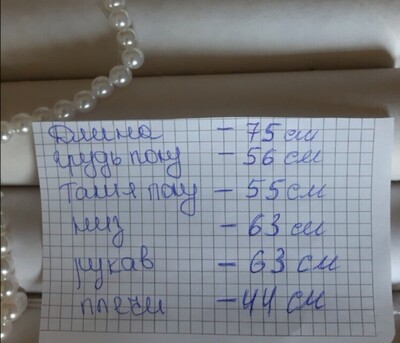 Длина - 75 см
грудь полу - 56 см
талия полу - 55 см
низ - 63 см
рукав - 63 см
плечи - 44 см